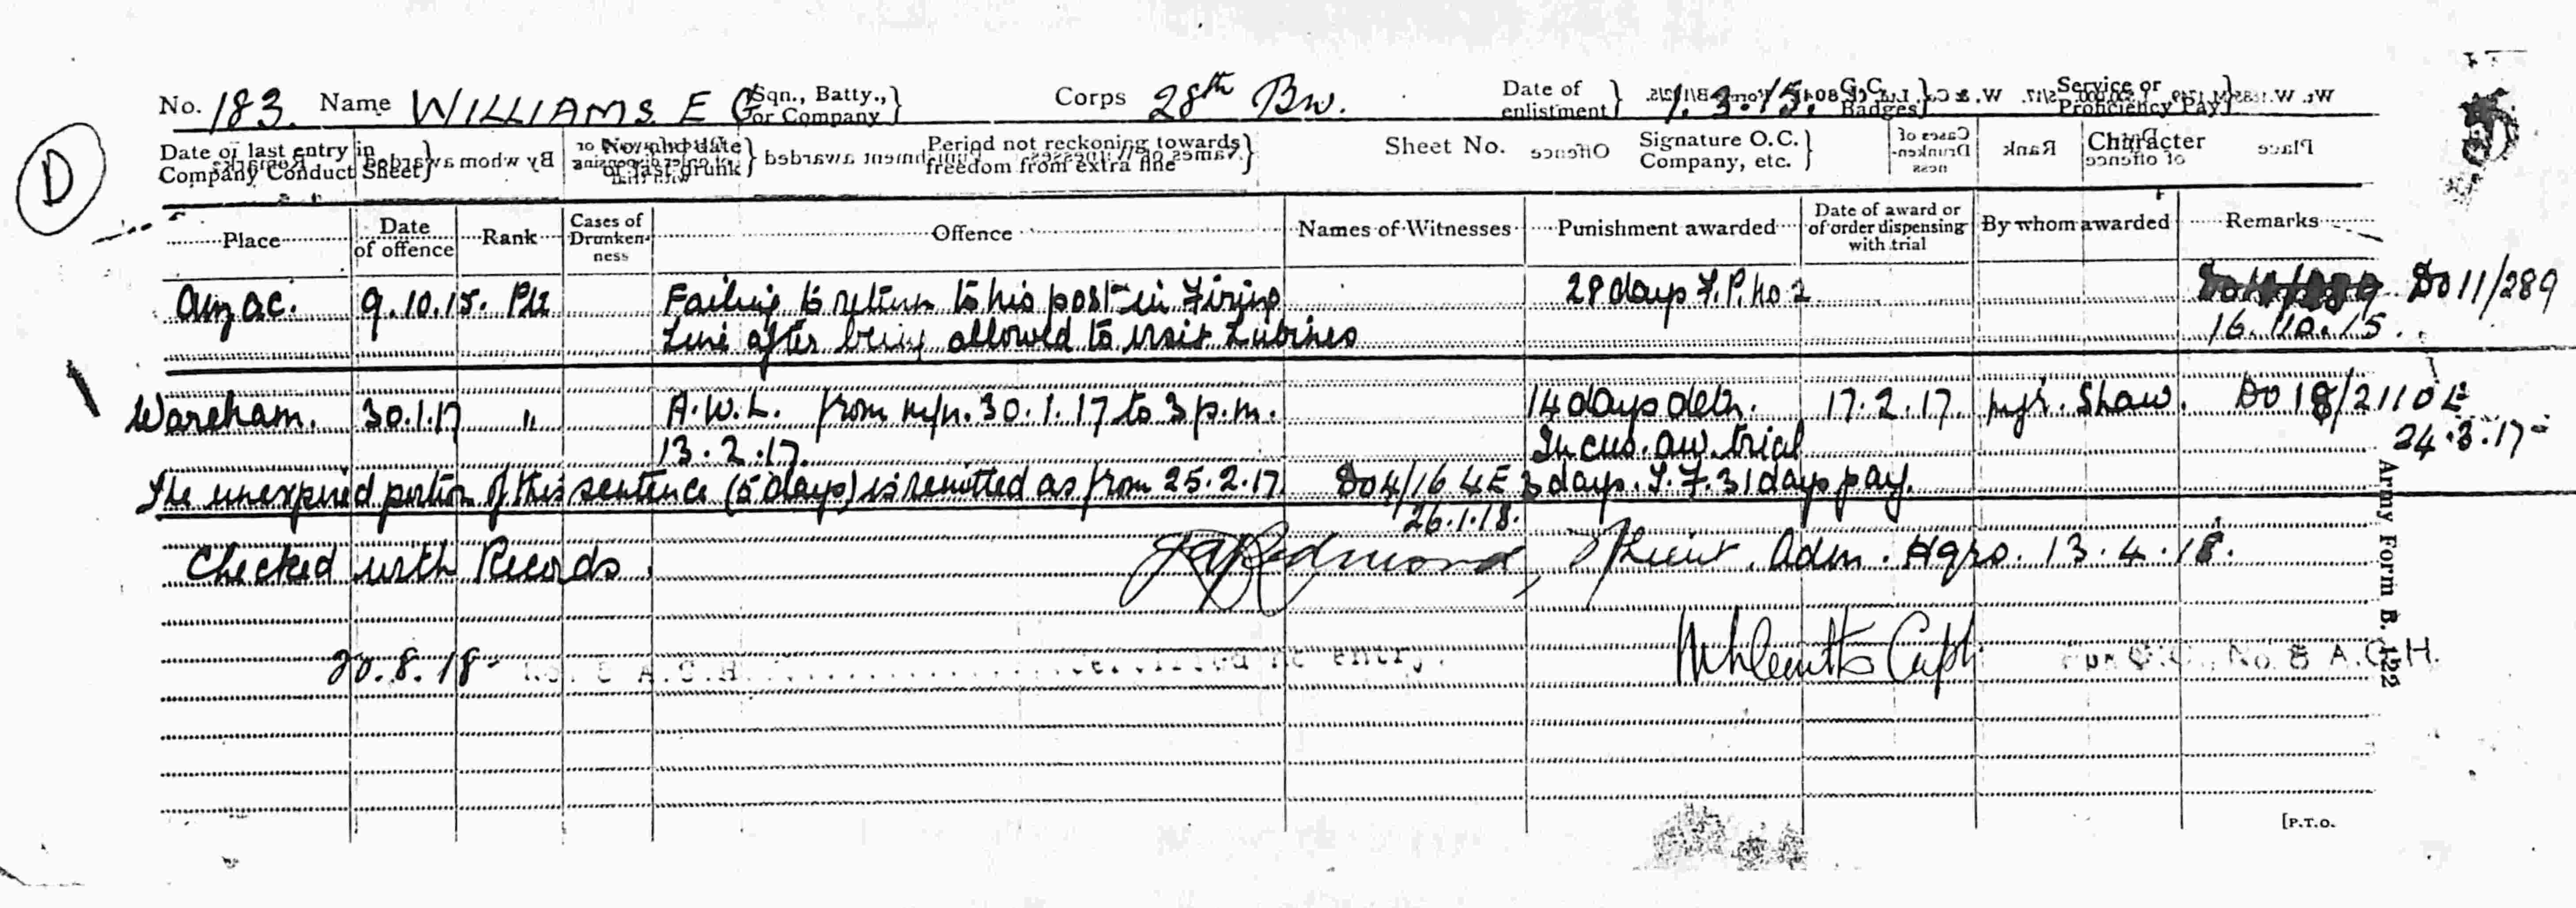 No. 183. Name WILLIAMS. E G Sqn., Batty., or Company } Corps 28th Bn. Date of enlistment } 1.3.15. G.C. Badges } Service or Proficiency Pay }
Date of last entry in Company Conduct Sheet } No. and date of last drunk } Period not reckoning towards freedom from extra fine } Sheet No. Signature O.C. Company, etc. } Character
D
Place Date of offence Rank Cases of Drunkenness Offence Names of Witnesses Punishment awarded Date of award or of order dispensing with trial By whom awarded Remarks
Anzac. 9.10.15. Pte Failing to return to his post in Firing 28 days F.P. No 2 Do 11/289
Line after being allowed to visit Latrines 16.10.15.
Wareham. 30.1.17 " A.W.L. from m/n. 30.1.17 to 3 p.m. 14 days detn. 17.2.17. Mjr. Shaw. Do 18/2110 E
13.2.17. In cus. aw. trial 24.3.17
The unexpired portion of this sentence (5 days) is remitted as from 25.2.17. Do 4/16 4E 3 days. T.F. 31 days pay.
26.1.18.
Checked with Records. Redmond, Lieut. Adm. Hqrs. 13.4.18.
20.8.18 No. 8 A.G.H. certified no entry. Capt for O.C., No 8 A.G.H.
Army Form B. 122
[P.T.O.